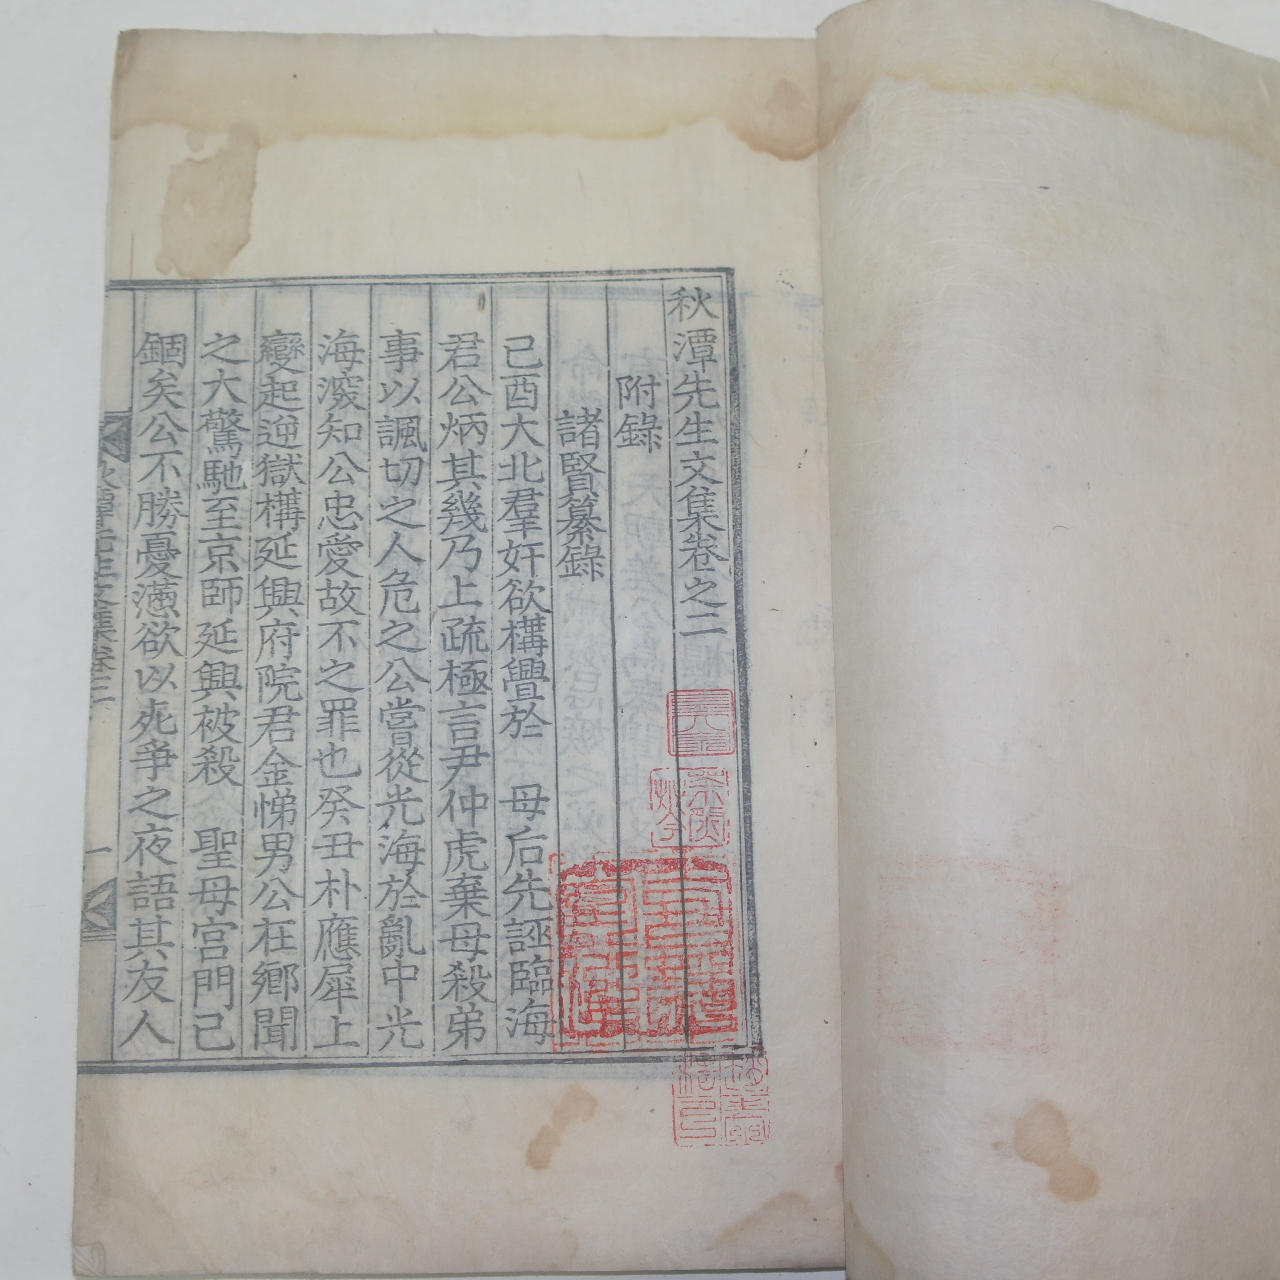 秋潭先生文集卷之二
附錄
諸賢纂錄
己酉大北羣奸欲構釁於 母后先誣臨海
君公炳其幾乃上疏極言尹仲虎棄母殺弟
事以諷切之人危之公嘗從光海於亂中光
海深知公忠愛故不之罪也癸丑朴應犀上
變起逆獄構延興府院君金悌男公在鄉聞
之大驚馳至京師延興被殺 聖母宮門已
錮矣公不勝憂懣欲以死爭之夜語其友人
秋潭先生文集卷二
一